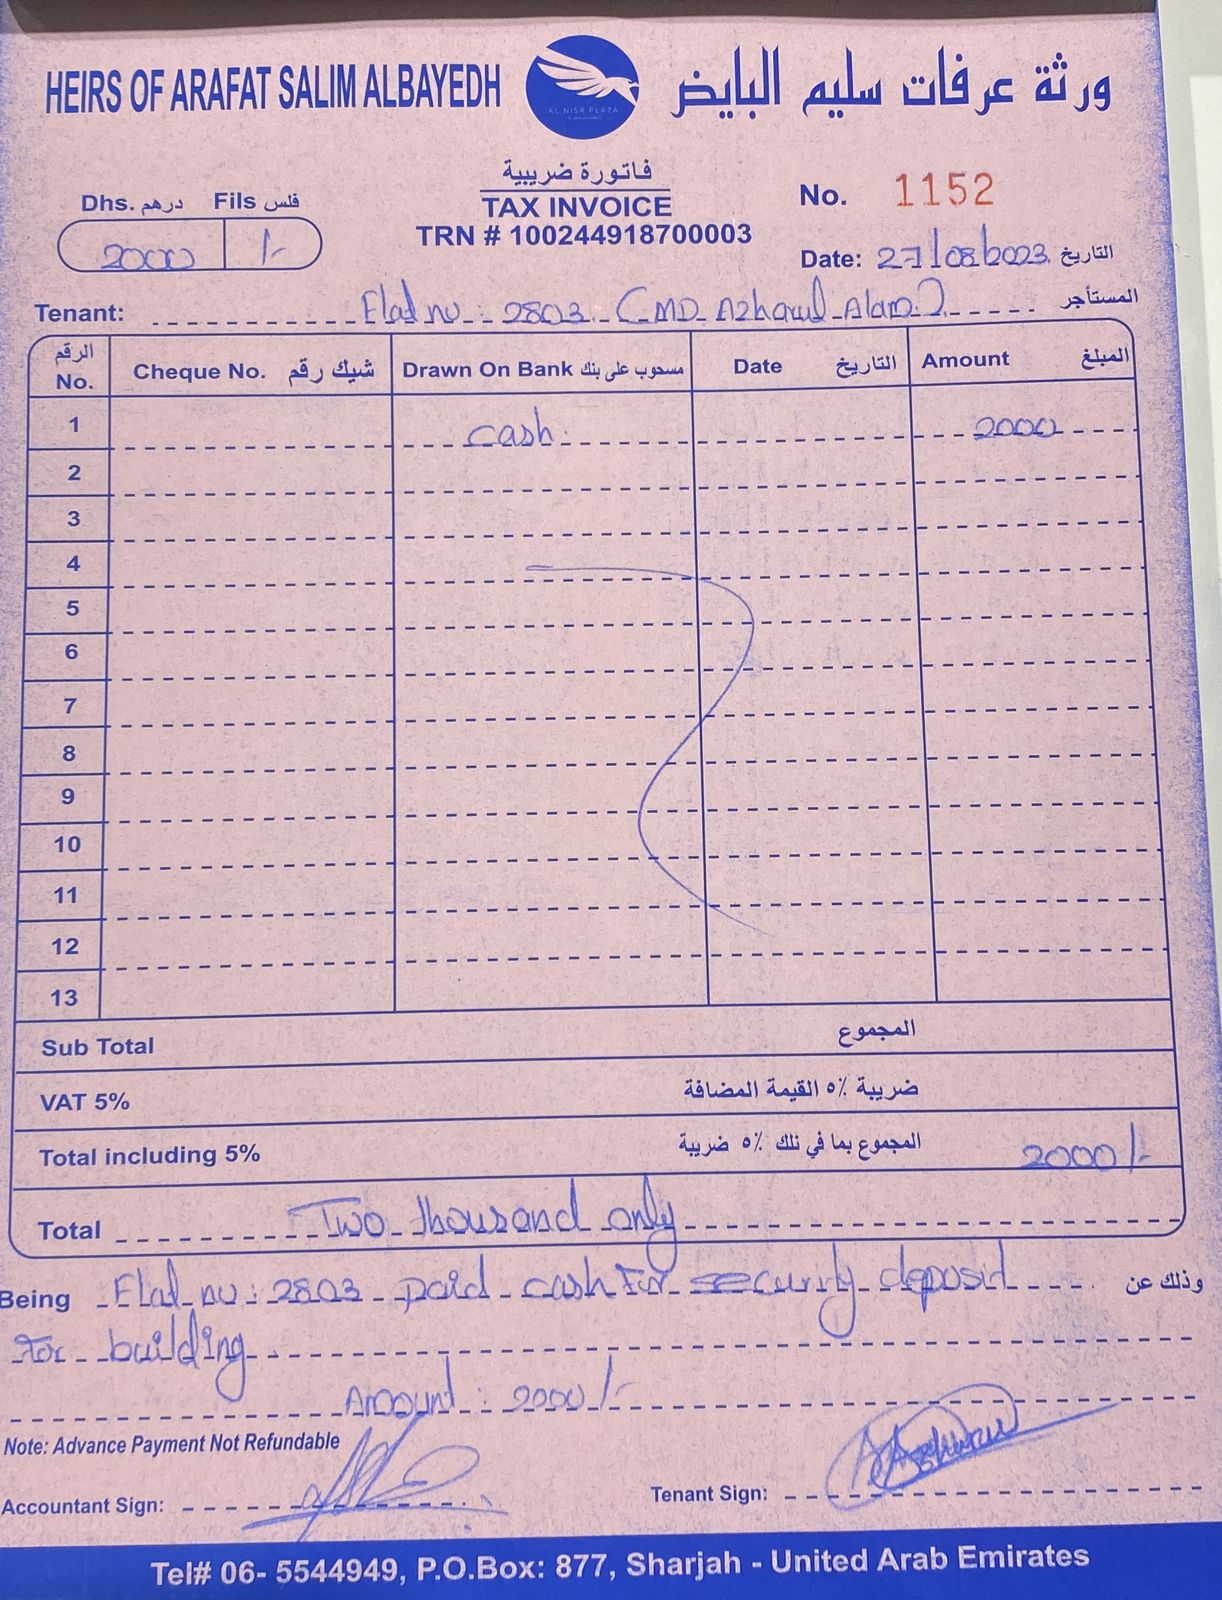 HEIRS OF ARAFAT SALIM ALBAYEDH
AL NISR PLAZA
ورثة عرفات سليم البايض
فاتورة ضريبية
TAX INVOICE
TRN # 100244918700003
Dhs. درهم Fils فلس
2000 /-
No. 1152
Date: 27/08/2023 التاريخ
Tenant: Flat no: 2803 (MD Azharul Alam) المستأجر
الرقم No. Cheque No. شيك رقم Drawn On Bank مسحوب على بنك Date التاريخ Amount المبلغ
1 cash 2000
2
3
4
5
6
7
8
9
10
11
12
13
Sub Total المجموع
VAT 5% ضريبة ٥٪ القيمة المضافة
Total including 5% المجموع بما في ذلك ٥٪ ضريبة 2000/-
Total Two thousand only
Being Flat no: 2803 paid cash for security deposit وذلك عن
For building
Amount: 2000/-
Note: Advance Payment Not Refundable
Accountant Sign:
Tenant Sign:
Tel# 06- 5544949, P.O.Box: 877, Sharjah - United Arab Emirates